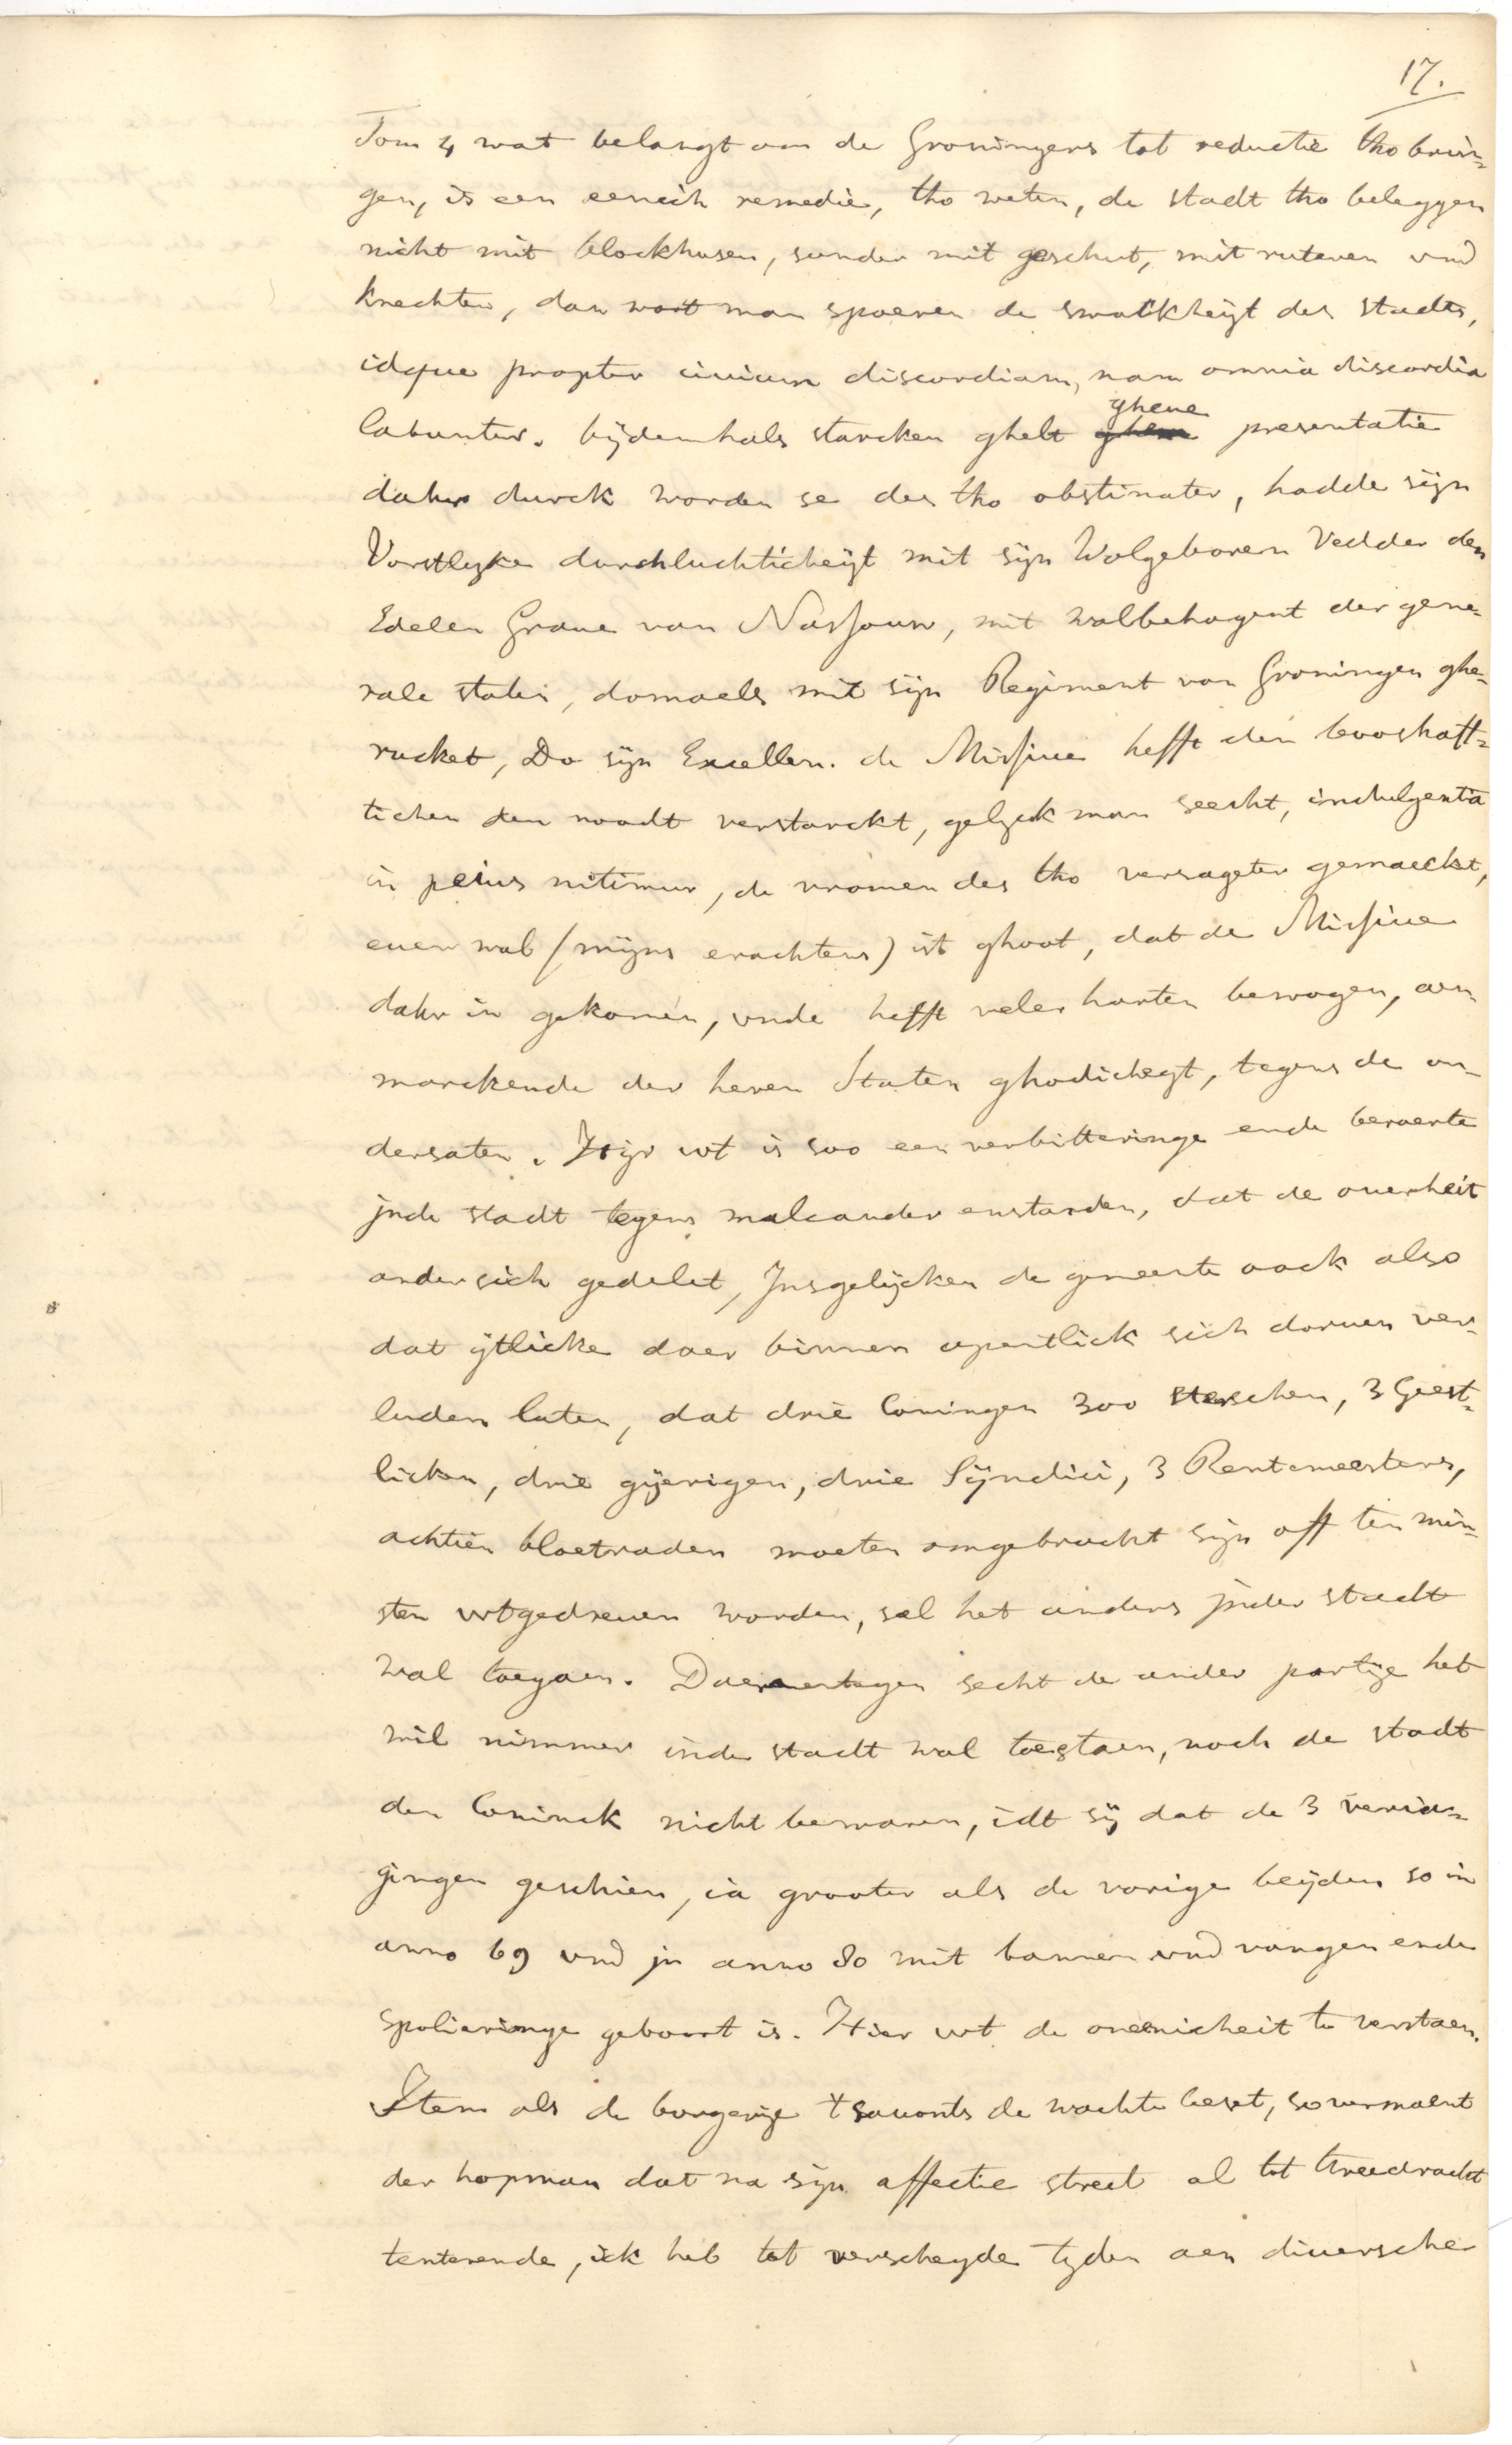 17.
Tom 4 wat belangt om de Groningers tot reductie tho brin=
gen, is een eenich remedie, tho weten, de stadt tho beleggen
nicht mit blockhusen, sunder mit geschut, mit ruteren vnd
knechten, dan wort man spoeren de swackheijt des stadts,
idque propter ciuium discordiam, nam omnia discordia
labuntur. bijdemhals starcken ghelt ghene presentatie
dahr durck worden se des tho obstinater, hadde sijn
Vorstlyke durchluchticheijt mit sijn Wolgeboren Vedder den
Edelen Graue van Nassouw, mit walbehagent der gene=
rale staten, domaels mit sijn Regiment van Groningen ghe=
rucket, Do sijn Excellen. de Missiue hefft den booshaff=
tichen den moodt verstarckt, gelyck man seecht, indulgentia
in peius nitimur, de vromen des tho versageter gemaeckt,
euen wal (mijns erachtens) ist ghoot, dat de Missiue
dahr in gekomen, vnde hefft veler harten bewogen, aen=
marckende der heren Staten ghodicheyt, tegens de on=
dersaten. Hijr wt is soo een verbitteringe ende beroerte
jnde stadt tegens malcander enstanden, dat de ouerheit
onder sich gedelet, Jnsgelijcken de gemeente oock also
dat ijtlicke daer binnen apentlick sich doruen ver=
luden laten, dat drie Coningen 300 sterschen, 3 Geest=
licken, drie gijerigen, drie Sijndici, 3 Rentemeesters,
achtien bloetraden moeten omgebracht sijn off ten min=
sten wtgedreuen worden, sal het anders jnder stadt
wal toegaen. Daerentegen secht de ander partije het
wil nimmer inde stadt wal toestaen, noch de stadt
den Coninck nicht bewaren, idt sij dat de 3 veria=
gingen geschien, ia grooter als de vorige beijden so in
anno 69 vnd jn anno 80 mit bannen vnd vangen ende
spolieringe geboort is. Hier wt de oneenicheit te verstaen.
Item als de borgerije tsauonts de wachte beset, so vermaent
der hopman dat na sijn affectie street al tot tweedracht
tenterende, ick heb tot verscheyde tyden aen diuersche